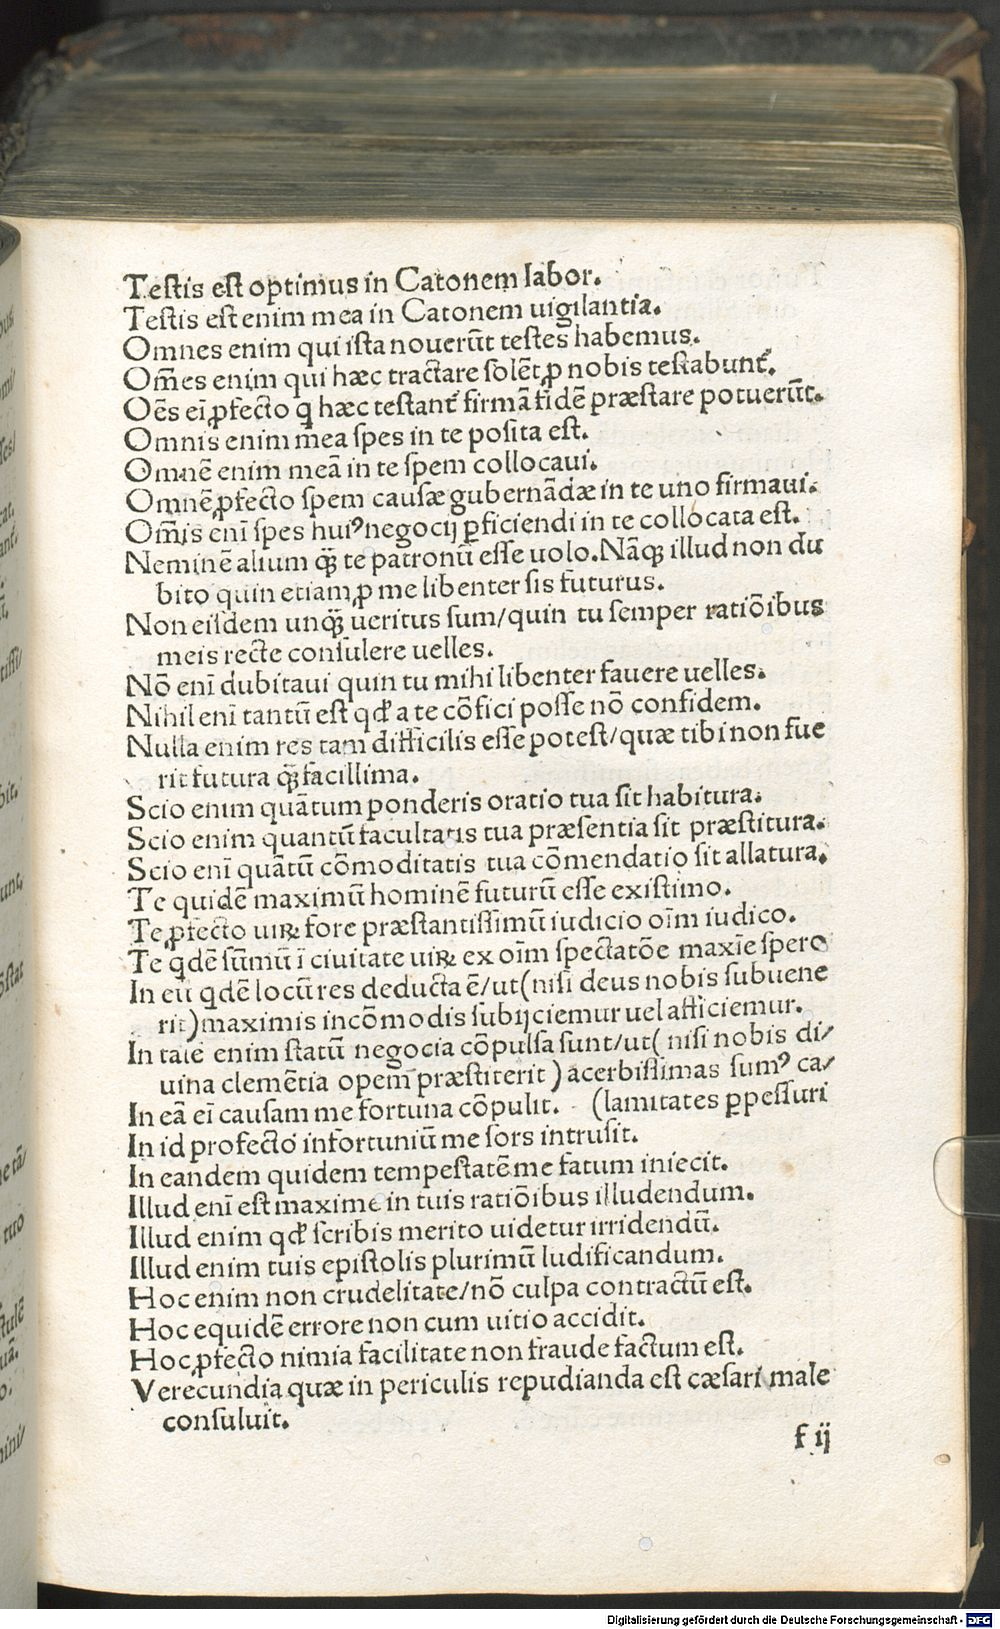 Testis est optimus in Catonem labor.
Testis est enim mea in Catonem uigilantia.
Omnes enim qui ista nouerūt testes habemus.
Oēs enim qui hæc tractare solēt ꝓ nobis testabunt᷑.
Oēs eī ꝓfecto q̄ hæc testant᷑ firmā fidē præstare potuerūt.
Omnis enim mea spes in te posita est.
Omnē enim meā in te spem collocaui.
Omnē ꝓfecto spem causæ gubernādæ in te uno firmaui.
Om̄is enī spes huiꝰ negocij ꝑficiendi in te collocata est.
Neminē alium q̄ꝫ te patronū esse uolo. Nāqꝫ illud non du
bito quin etiam ꝓ me libenter sis futurus.
Non eisdem unq̄ꝫ ueritus sum/quin tu semper ratiōibus
meis recte consulere uelles.
Nō enī dubitaui quin tu mihi libenter fauere uelles.
Nihil enī tantū est qđ a te cōfici posse nō confidem.
Nulla enim res tam difficilis esse potest/quæ tibi non fue
rit futura q̄ꝫ facillima.
Scio enim quātum ponderis oratio tua sit habitura.
Scio enim quantū facultatis tua præsentia sit præstitura.
Scio enī quātū cōmoditatis tua cōmendatio sit allatura.
Te quidē maximū hominē futurū esse existimo.
Te ꝓfecto uiꝝ fore præstantissimū iudicio oīm iudico.
Te q̄dē sūmū ī ciuitate uiꝝ ex oīm spectatōe maxīe spero
In eū q̄dē locū res deducta ē/ut(nisi deus nobis subuene
rit)maximis incōmodis subijciemur uel afficiemur.
In talē enim statū negocia cōpulsa sunt/ut( nisi nobis di/
uina clemētia opem præstiterit ) acerbissimas sumꝰ ca/
In eā eī causam me fortuna cōpulit. (lamitates ꝑpessuri
In id profecto infortuniū me sors intrusit.
In eandem quidem tempestatē me fatum iniecit.
Illud enī est maxime in tuis ratiōibus illudendum.
Illud enim qđ scribis merito uidetur irridendū.
Illud enim tuis epistolis plurimū ludificandum.
Hoc enim non crudelitate/nō culpa contractū est.
Hoc equidē errore non cum uitio accidit.
Hoc ꝓfecto nimia facilitate non fraude factum est.
Verecundia quæ in periculis repudianda est cæsari male
consuluit.
f ij
Digitalisierung gefördert durch die Deutsche Forschungsgemeinschaft - DFG